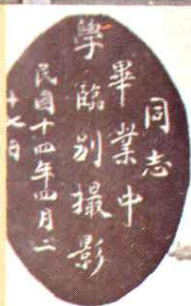 同志
畢業中
學臨別撮影
民國十四年四月二
十七日